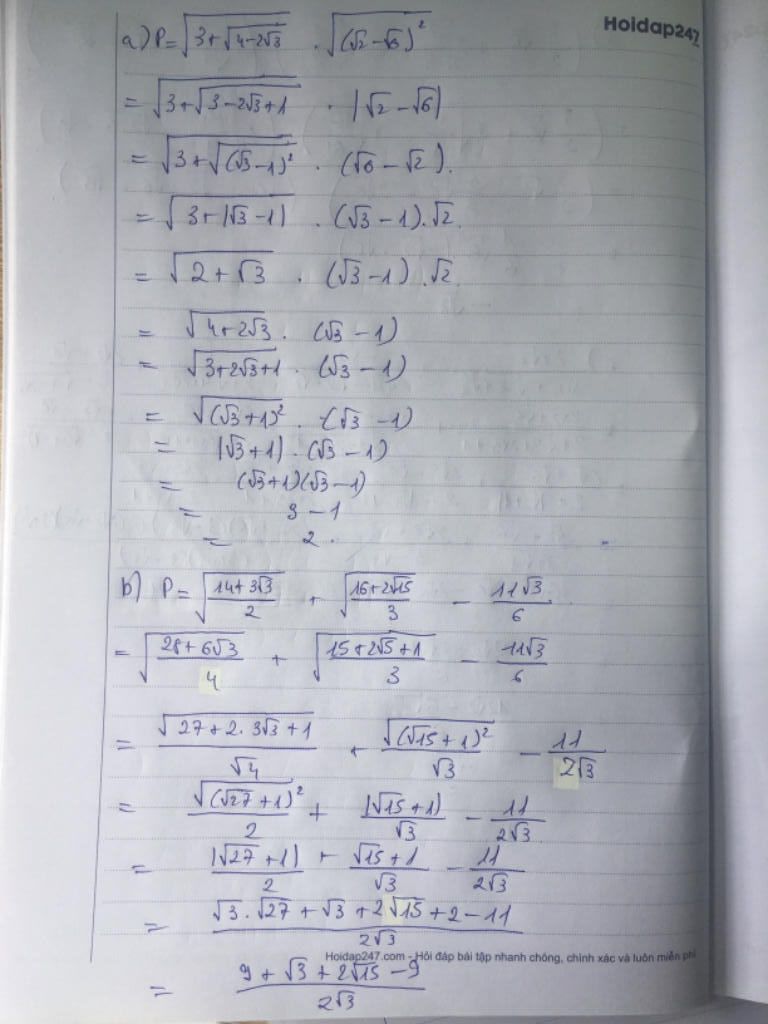 Hoidap247
a) P = √(3+√(4-2√3)) . √((√2-√6)²)
= √(3+√(3-2√3+1)) . |√2 - √6|
= √(3+√((√3-1)²)) . (√6 - √2).
= √(3+|√3-1|) . (√3-1).√2.
= √(2+√3) . (√3-1).√2.
= √(4+2√3) . (√3-1)
= √(3+2√3+1) . (√3-1)
= √((√3+1)²) . (√3-1)
= |√3+1| . (√3-1)
= (√3+1)(√3-1)
= 3-1
= 2.
b) P = √((14+3√3)/2) + √((16+2√15)/3) - 11√3/6.
= √((28+6√3)/4) + √((15+2√15+1)/3) - 11√3/6
= √(27+2.3√3+1)/√4 + √((√15+1)²)/√3 - 11/(2√3)
= √((√27+1)²)/2 + |√15+1|/√3 - 11/(2√3)
= |√27+1|/2 + (√15+1)/√3 - 11/(2√3)
= (√3.√27+√3+2√15+2-11)/(2√3)
Hoidap247.com - Hỏi đáp bài tập nhanh chóng, chính xác và luôn miễn phí
= (9+√3+2√15-9)/(2√3)